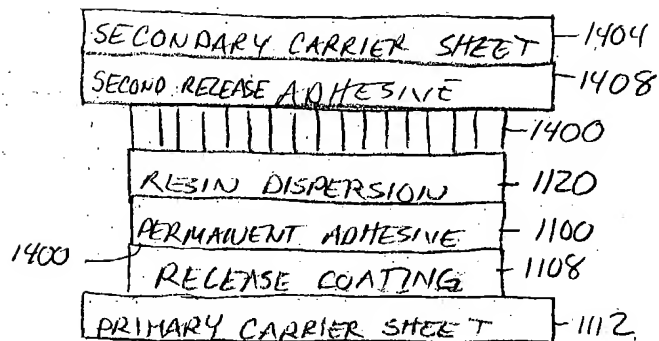 SECONDARY CARRIER SHEET 1404
SECOND RELEASE ADHESIVE 1408
1400
RESIN DISPERSION 1120
PERMANENT ADHESIVE 1100
1400
RELEASE COATING 1108
PRIMARY CARRIER SHEET 1112